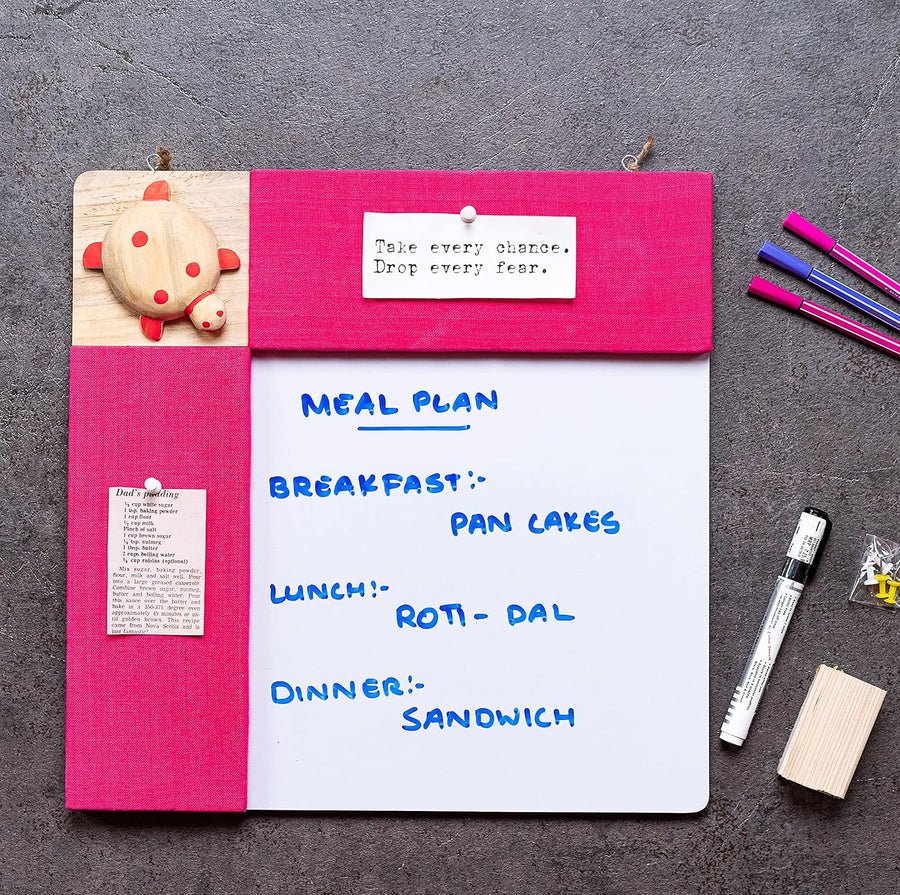 Take every chance.
Drop every fear.
MEAL PLAN
BREAKFAST:-
PAN CAKES
LUNCH:-
ROTI - DAL
DINNER:-
SANDWICH
Dad's pudding
cup white sugar
1 tsp. baking powder
1 cup flour
½ cup milk
Pinch of salt
1 cup brown sugar
tsp. nutmeg
1 tbsp. butter
2 cups boiling water
cup raisins (optional)
Mix sugar, baking powder,
flour, milk and salt well. Pour
into a large greased casserole.
Combine brown sugar, nutmeg,
butter and boiling water. Pour
this sauce over the batter and
bake in a 350-375 degree oven
approximately 45 minutes or un-
til golden brown. This recipe
came from Nova Scotia and is
just fantastic!